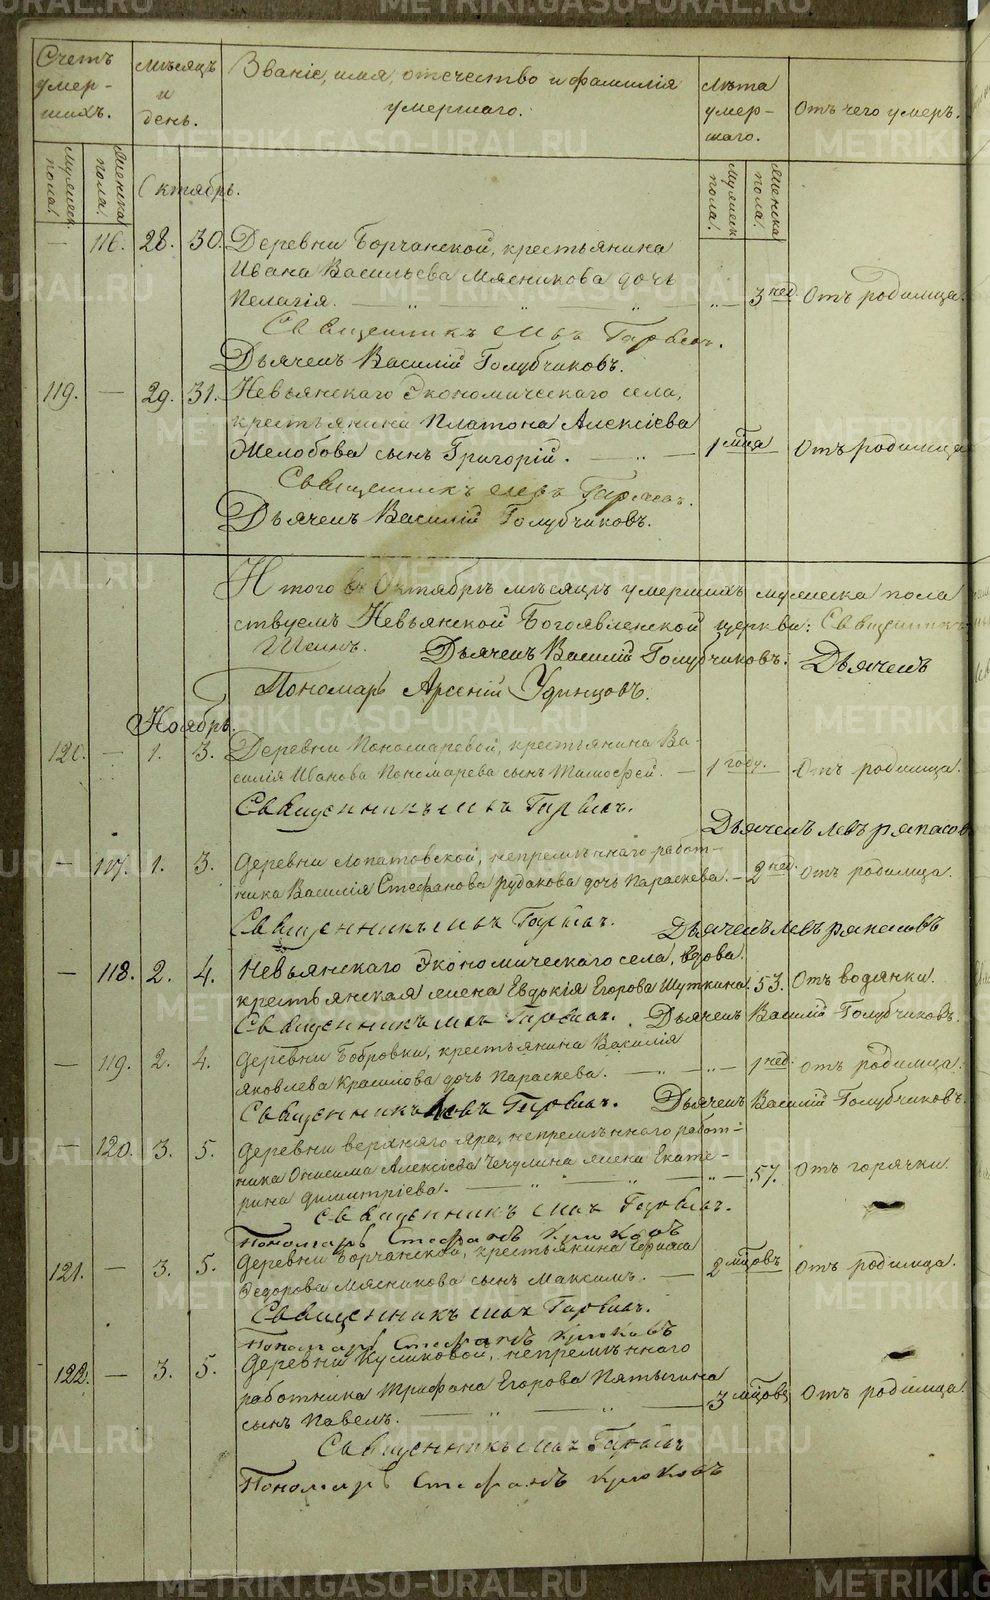 Счетъ умер-шихъ.
Мѣсяцъ и день.
Званіе, имя, отчество и фамилія умершаго.
Лѣта умер-шаго.
Отъ чего умеръ.
Мужеск. пола.
Женска пола.
Мужеск пола.
Женска пола.
Октябрь.
— 116. 28. 30. Деревни Борчанской, крестьянина
Ивана Васильева Мясникова дочь
Пелагія. — „ — „ — 3 нед. Отъ родимца.
Священникъ Левъ
Дьячекъ Василій Голубчиковъ.
119. — 29. 31. Невьянскаго Экономическаго села,
крестьянина Платона Алексіева
Желобова сынъ Григорій. — „ — 1 мца Отъ родимца
Священникъ Левъ
Дьячекъ Василій Голубчиковъ.
Итого въ Октябрѣ мѣсяцѣ умершихъ мужеска пола
ствуемъ Невьянской Богоявленской церкви: Священникъ
Дьячекъ Василій Голубчиковъ. Дьячекъ
Пономарь Арсеній Удинцовъ.
Ноябрь.
120. — 1. 3. Деревни Пономаревой, крестьянина Ва-
силія Иванова Пономарева сынъ Тимофей. — 1 году. Отъ родимца.
Священникъ Левъ
Дьячекъ Левъ
— 117. 1. 3. Деревни Лопатовской, непремѣннаго работ-
ника Василія Стефанова Рудакова дочь Параскева. — 2 нед. Отъ родимца.
Священникъ Левъ
Дьячекъ Левъ
— 118. 2. 4. Невьянскаго Экономическаго села, вдова
крестьянская жена Евдокія Егорова Шуткина. 53. Отъ водянки.
Священникъ Левъ Дьячекъ Василій Голубчиковъ.
— 119. 2. 4. Деревни Бобровки, крестьянина Василія
Яковлева Красилова дочь Параскева. — „ — „ — 1 нед. Отъ родимца.
Священникъ Левъ Дьячекъ Василій Голубчиковъ.
— 120. 3. 5. Деревни Верхняго Яра, непремѣннаго работ-
ника Онисима Алексіева Чечулина жена Екате-
рина Димитріева. — „ — „ — „ — 57. Отъ горячки.
Священникъ Левъ
Пономарь Стефанъ Крюковъ
121. — 3. 5. Деревни Борчанской, крестьянина
Федорова Мясникова сынъ Максимъ. — 2 мцовъ Отъ родимца.
Священникъ Левъ
Пономарь Стефанъ Крюковъ
122. — 3. 5. Деревни Куликовой, непремѣннаго
работника Трифана Егорова Пятыгина
сынъ Павелъ. — „ — „ — 3 мцовъ Отъ родимца.
Священникъ Левъ
Пономарь Стефанъ Крюковъ
METRIKI.GASO-URAL.RU